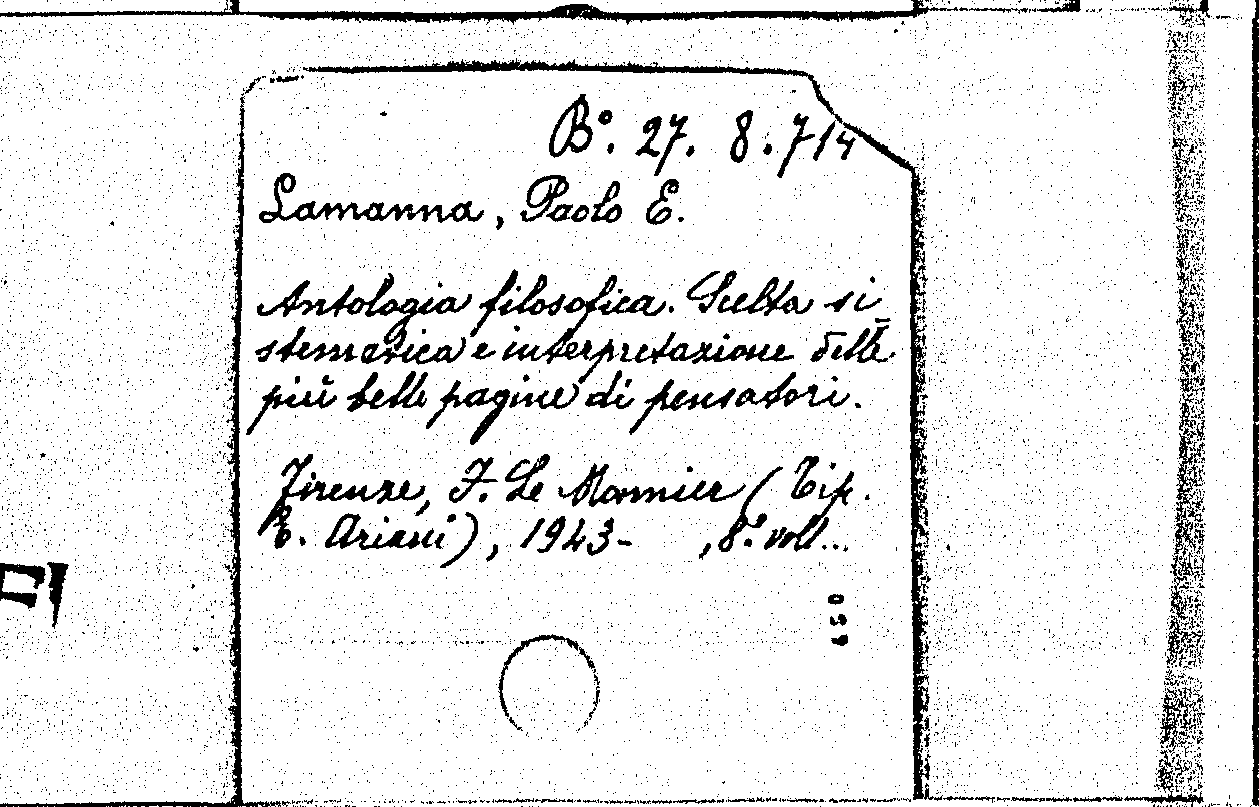 B°. 27. 8. 714
Lamanna, Paolo E.
Antologia filosofica. Scelta si
stematica e interpretazione delle
più belle pagine di pensatori.
Firenze, F. Le Monnier (Tip.
E. Ariani), 1943- , 8.° voll...
650